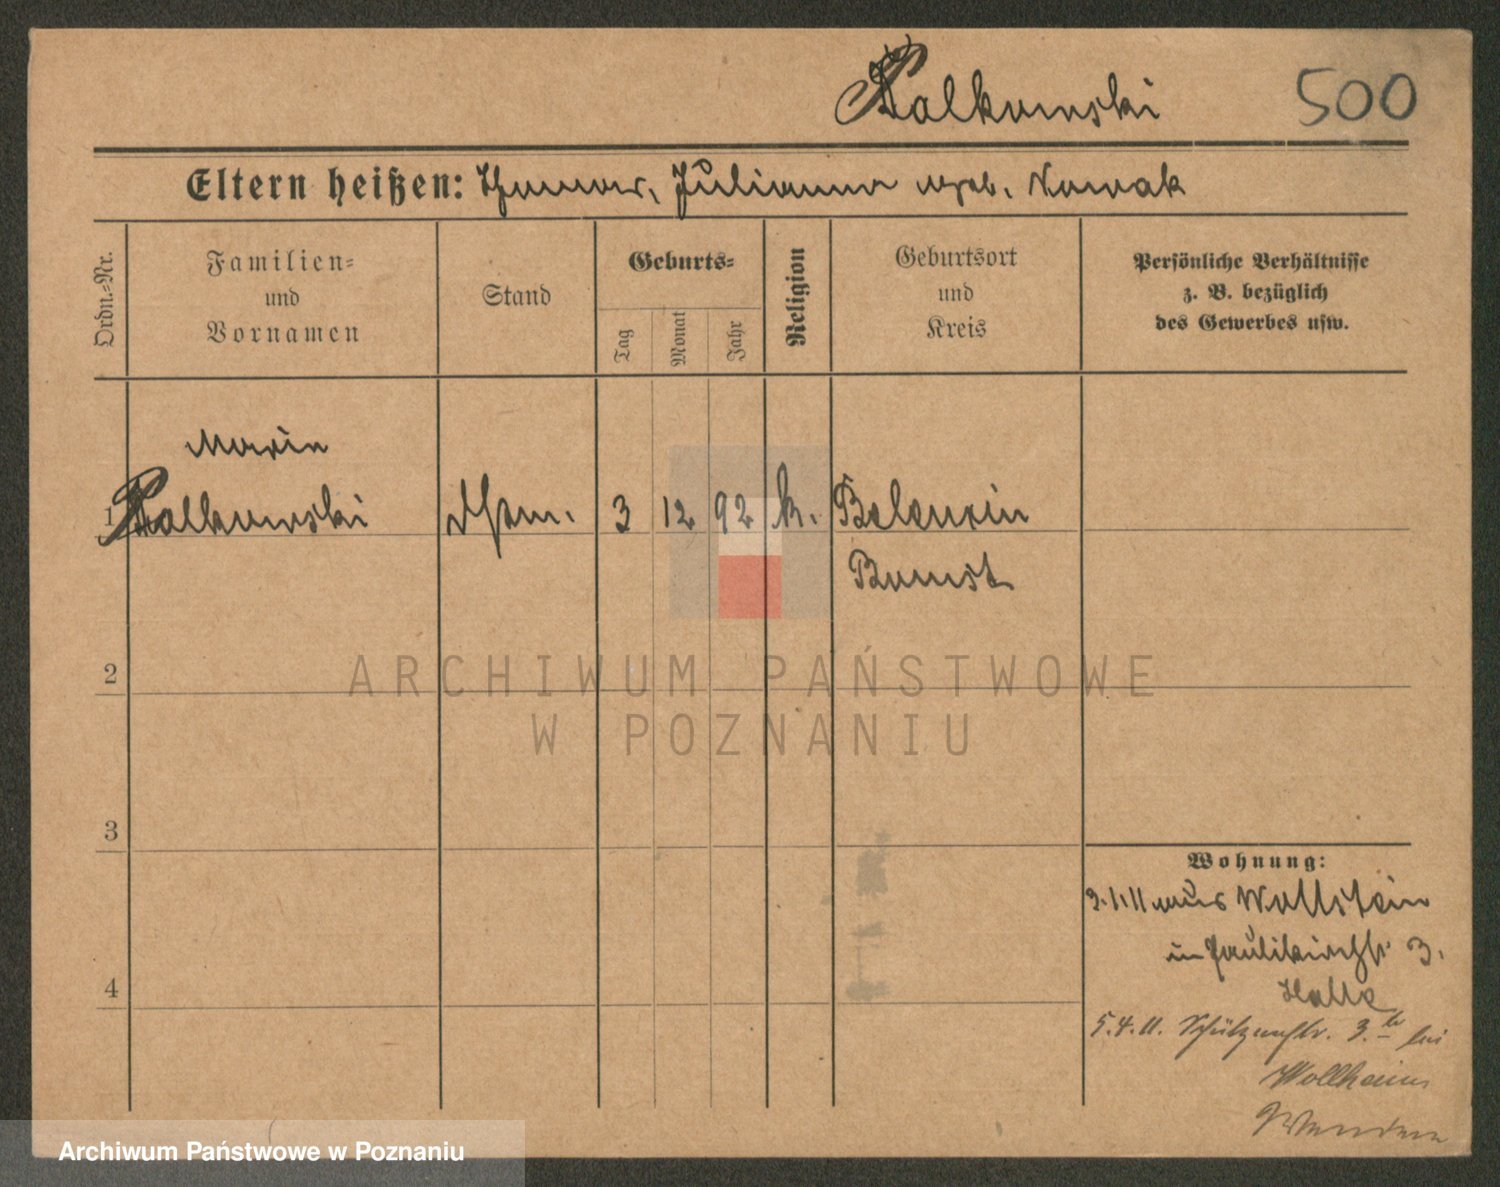 Kalkowski 500
Eltern heißen: Thomas, Julianna geb. Nowak
Ordn.-Nr.
Familien-
und
Vornamen
Stand
Geburts-
Tag
Monat
Jahr
Religion
Geburtsort
und
Kreis
Persönliche Verhältnisse
z. B. bezüglich
des Gewerbes usw.
Marie
1 Kalkowski 3 12 92 k. Belencin
Bomst
2
3
4
Wohnung:
3.1.11 aus Wollstein
in Paulikirchstr. 3.
5.4.11. Schützenstr. 3. bei
Wollheim
ARCHIWUM PAŃSTWOWE
W POZNANIU
Archiwum Państwowe w Poznaniu